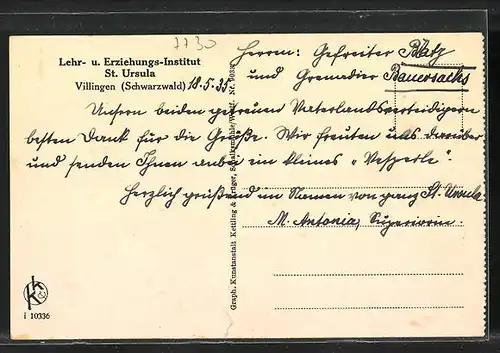 7730
Lehr- u. Erziehungs-Institut
St. Ursula
Villingen (Schwarzwald) 18.5.35
Herren: Gefreiter Blatz
und Grenadier Bauersachs
Unsern beiden getreuen Vaterlandsverteidigern
besten Dank für die Grüße. Wir freuten uns darüber
und senden Ihnen anbei ein kleines "Vesperle".
Herzlich grüßend im Namen von ganz St. Ursula
M. Antonia, Superiorin.
Graph. Kunstanstalt Kettling & Krüger, Schalksmühle/Westf. Nr.
k k
i 10336